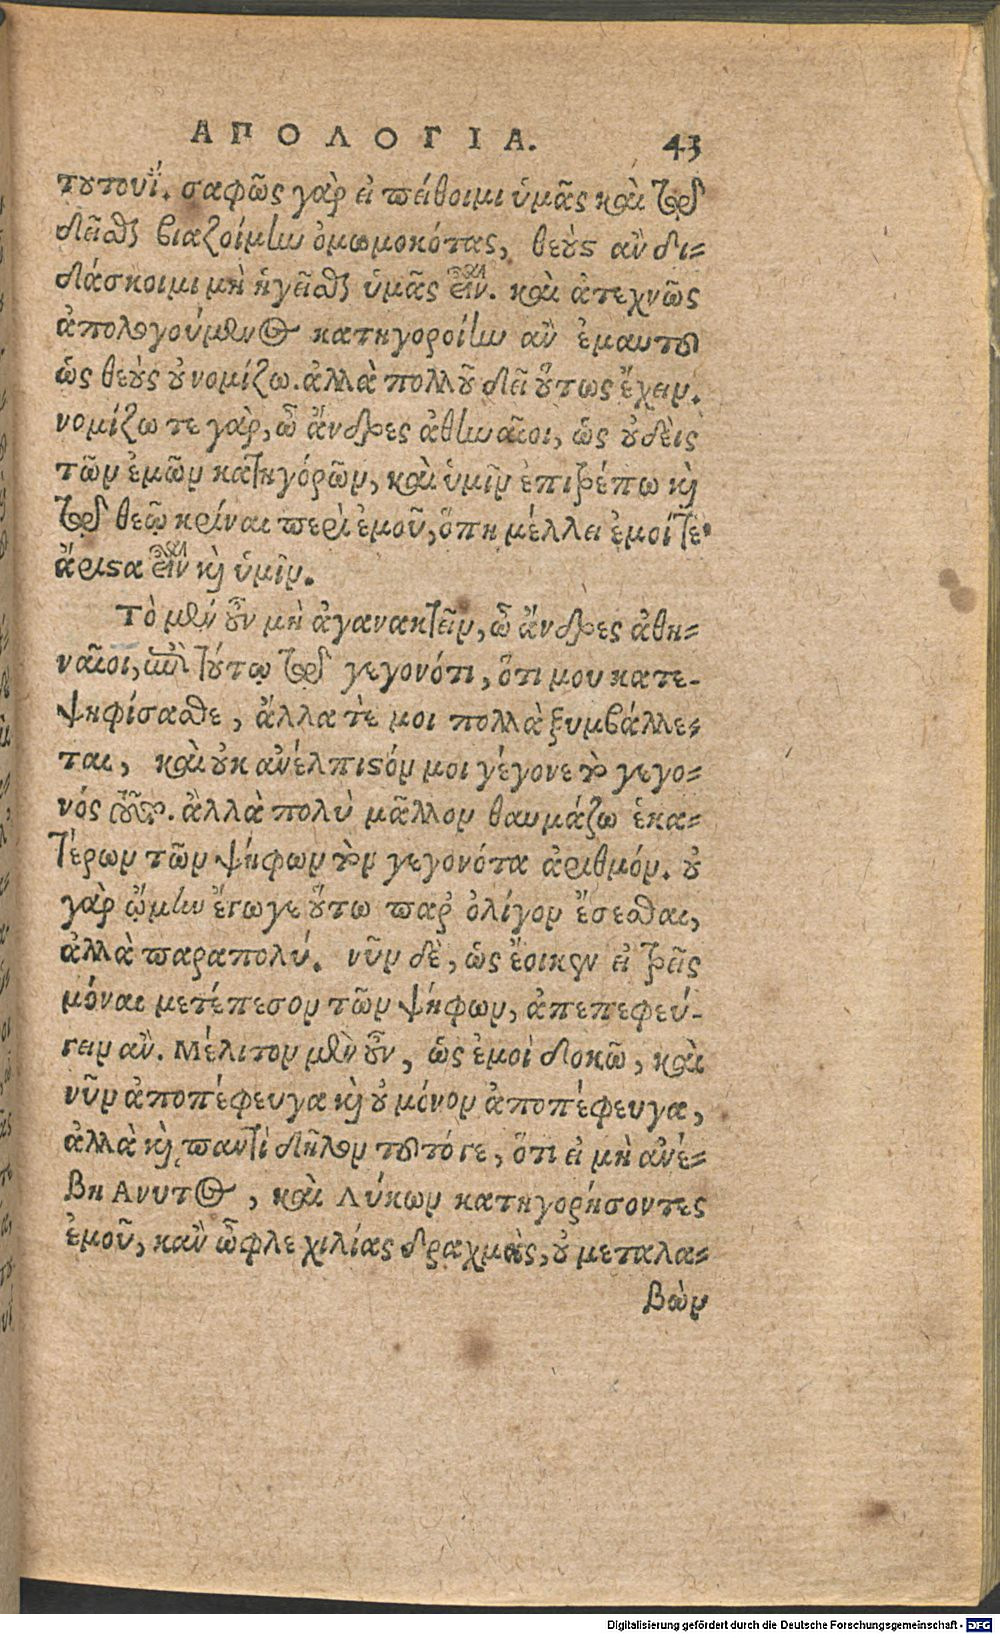 ΑΠΟΛΟΓΙΑ. 43
τουτουΐ. σαφῶς γὰρ εἰ πείθοιμι ὑμᾶς καὶ τῷ
δεῖσθαι βιαζοίμην ὀμωμοκότας, θεοὺς ἂν δι-
δάσκοιμι μὴ ἡγεῖσθαι ὑμᾶς εἶναι. καὶ ἀτεχνῶς
ἀπολογούμενος κατηγοροίην ἂν ἐμαυτοῦ
ὡς θεοὺς οὐ νομίζω. ἀλλὰ πολλοῦ δεῖ οὕτως ἔχειν.
νομίζω τε γὰρ, ὦ ἄνδρες ἀθηναῖοι, ὡς οὐδεὶς
τῶν ἐμῶν κατηγόρων, καὶ ὑμῖν ἐπιτρέπω καὶ
τῷ θεῷ κρίναι περὶ ἐμοῦ, ὅπη μέλλει ἐμοί τε
ἄριστα εἶναι καὶ ὑμῖν.
Τὸ μὲν οὖν μὴ ἀγανακτεῖν, ὦ ἄνδρες ἀθη-
ναῖοι, ἐπὶ τούτῳ τῷ γεγονότι, ὅτι μου κατε-
ψηφίσασθε, ἄλλα τὲ μοι πολλὰ ξυμβάλλε-
ται, καὶ οὐκ ἀνέλπιστόν μοι γέγονε τὸ γεγο-
νός τοῦτο. ἀλλὰ πολὺ μᾶλλον θαυμάζω ἑκα-
τέρων τῶν ψήφων τὸν γεγονότα ἀριθμόν. οὐ
γὰρ ᾤμην ἔγωγε οὕτω παρ' ὀλίγον ἔσεσθαι,
ἀλλὰ παραπολύ. νῦν δὲ, ὡς ἔοικεν εἰ τρεῖς
μόναι μετέπεσον τῶν ψήφων, ἀπεπεφεύ-
γειν ἄν. Μέλιτον μὲν οὖν, ὡς ἐμοὶ δοκῶ, καὶ
νῦν ἀποπέφευγα καὶ οὐ μόνον ἀποπέφευγα,
ἀλλὰ καὶ παντὶ δῆλον τοῦτό γε, ὅτι εἰ μὴ ἀνέ-
βη Ανυτος, καὶ Λύκων κατηγορήσοντες
ἐμοῦ, κἂν ὦφλε χιλίας δραχμὰς, οὐ μεταλα-
βὼν
Digitalisierung gefördert durch die Deutsche Forschungsgemeinschaft - DFG